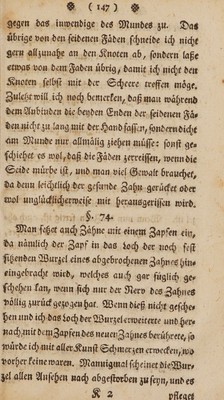 ( 147 )
gegen das inwendige des Mundes zu. Das
übrige von den seidenen Fäden schneide ich nicht
gern allzunahe an den Knoten ab, sondern laße
etwas von dem Faden übrig, damit ich nicht den
Knoten selbst mit der Scheere treffen möge.
Zuletzt will ich noch bemerken, daß man während
dem Zubinden die beyden Enden der seidenen Fä-
den nicht zu lang mit der Hand fassen, sondern dicht
am Munde nur allmälig ziehen müsse: sonst ge-
schiehet es wol, daß die Fäden zerreissen, wenn die
Seide mürbe ist, und man viel Gewalt brauchet,
da denn leichtlich der gesunde Zahn gerücket oder
wol unglücklicherweise mit herausgerissen wird.
§. 74.
Man setzet auch Zähne mit einem Zapfen ein,
da nämlich der Zapf in das Loch der noch fest
sitzenden Wurzel eines abgebrochenen Zahnes hin-
eingebracht wird, welches auch gar füglich ge-
schehen kan, wenn sich nur der Nerv des Zahnes
völlig zurück gezogen hat. Wenn dieß nicht gesche-
hen und ich das Loch der Wurzel erweiterte und her-
nach mit dem Zapfen des neuen Zahnes berührete, so
würde ich mit aller Kunst Schmerzen erwecken, wo
vorher keine waren. Mannigmal scheinet die Wur-
zel allen Ansehen nach abgestorben zu seyn, und es
K 2 pfleget